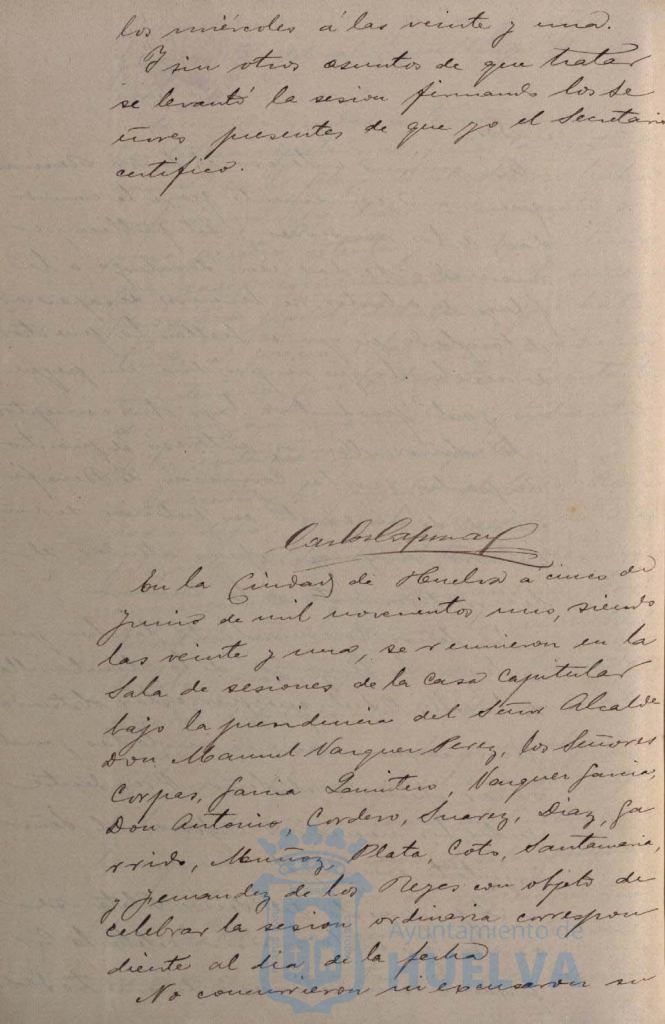 los miércoles á las veinte y una.
Y sin otros asuntos de que tratar
se levantó la sesion firmando los Se
ñores presentes de que yo el Secretario
certifico.
Carlos
En la Ciudad de Huelva a cinco de
Junio de mil novecientos uno, siendo
las veinte y una, se reunieron en la
Sala de sesiones de la casa Capitular
bajo la presidencia del Señor Alcalde
Don Manuel Vazquez Perez, los Señores
Corpas, Garcia Quintero, Vazquez Garcia,
Don Antonio, Cordero, Suarez, Diaz, Ga
rrido, Muñoz, Plata, Coto, Santamaria,
y Fernandez de los Reyes con objeto de
celebrar la sesion ordinaria correspon
diente al dia de la fecha
No concurrieron ni excusaron su
Ayuntamiento de
HUELVA